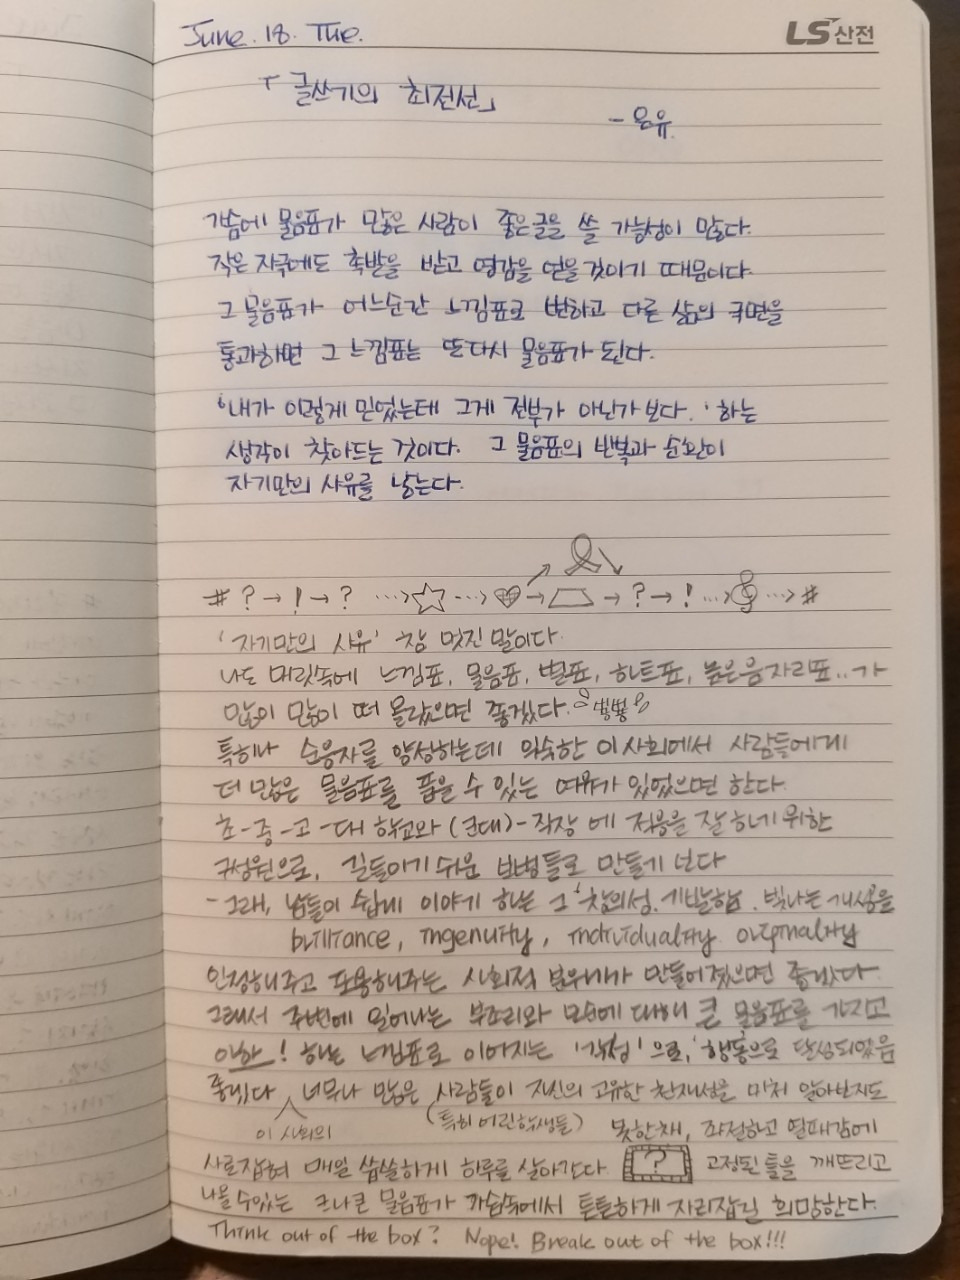 June. 18. Tue.
LS산전
「글쓰기의 최전선」
- 은유.
가슴에 물음표가 많은 사람이 좋은글을 쓸 가능성이 많다.
작은 자극에도 촉발을 받고 영감을 얻을것이기 때문이다.
그 물음표가 어느순간 느낌표로 변하고 다른 삶의 국면을
통과하면 그 느낌표는 또다시 물음표가 된다.
'내가 이렇게 믿었는데 그게 전부가 아닌가 보다.' 하는
생각이 찾아드는 것이다. 그 물음표의 반복과 순환이
자기만의 사유를 낳는다.
# ? → ! → ? ...> ☆ ...> ♥ → → ? → ! ...> 𝄞 ...> #
'자기만의 사유' 참 멋진 말이다.
나도 머릿속에 느낌표, 물음표, 별표, 하트표, 높은음자리표..가
많이 많이 떠 올랐으면 좋겠다. 뿅뿅
특히나 순응자를 양성하는데 익숙한 이 사회에서 사람들에게
더 많은 물음표를 품을 수 있는 여유가 있었으면 한다.
초-중-고-대 학교와 (군대)-직장 에 적응을 잘 하기 위한
구성원으로, 길들이기 쉬운 방법들로 만들기 보다
- 그래, 남들이 쉽게 이야기 하는 그 '창의성, 기발함, 빛나는 개성을
brilliance, ingenuity, individuality. originality
인정해주고 포용해주는 사회적 분위기가 만들어졌으면 좋겠다.
그래서 주변에 일어나는 부조리와 모순에 대해 큰 물음표를 가지고
아하! 하는 느낌표로 이어지는 '각성'으로, '행동으로 달성되었음
좋겠다 너무나 많은 사람들이 자신의 고유한 천재성을 마저 알아보지도
이 사회의 (특히 어린학생들) 못한채, 좌절하고 열패감에
사로잡혀 매일 씁쓸하게 하루를 살아간다. ? 고정된 틀을 깨뜨리고
나올 수있는 크나큰 물음표가 가슴속에서 튼튼하게 자리잡길 희망한다.
Think out of the box? Nope! Break out of the box!!!